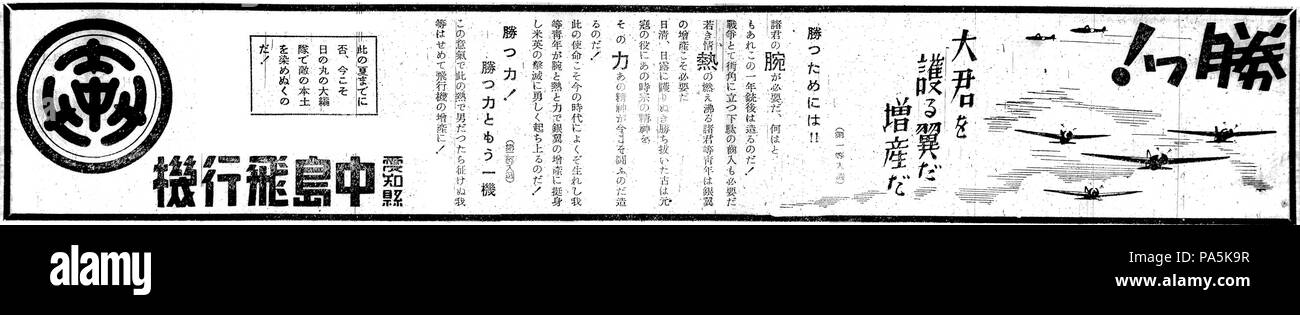 勝つ!
大君を
護る翼だ
増産だ
勝つためには!!
(第一等入選)
諸君の腕が必要だ、何はと
もあれこの一年銃後は造るのだ!
戦争とて街角に立つ下駄の歯入も必要だ
若き情熱の燃え沸る諸君等青年は銀翼
の増産こそ必要だ
日清、日露に護りぬき勝ち抜いた古は元
寇の役にあの時宗の精神を
その力あの精神が今日こそ闘ふのだ造
るのだ!
此の使命こそ今の時代によくぞ生れし我
等青年が腕と熱と力で銀翼の増産に挺身
し米英の撃滅に勇しく起ち上るのだ!
勝つ力!
勝つ力ともう一機
この意氣で此の熱で男だつたら征けぬ我
等はせめて飛行機の増産に!
此の夏までに
否、今こそ
日の丸の大編
隊で敵の本土
を染めぬくの
だ!
愛知縣
中島飛行機
alamy
Image ID: PA5K9R
www.alamy.com